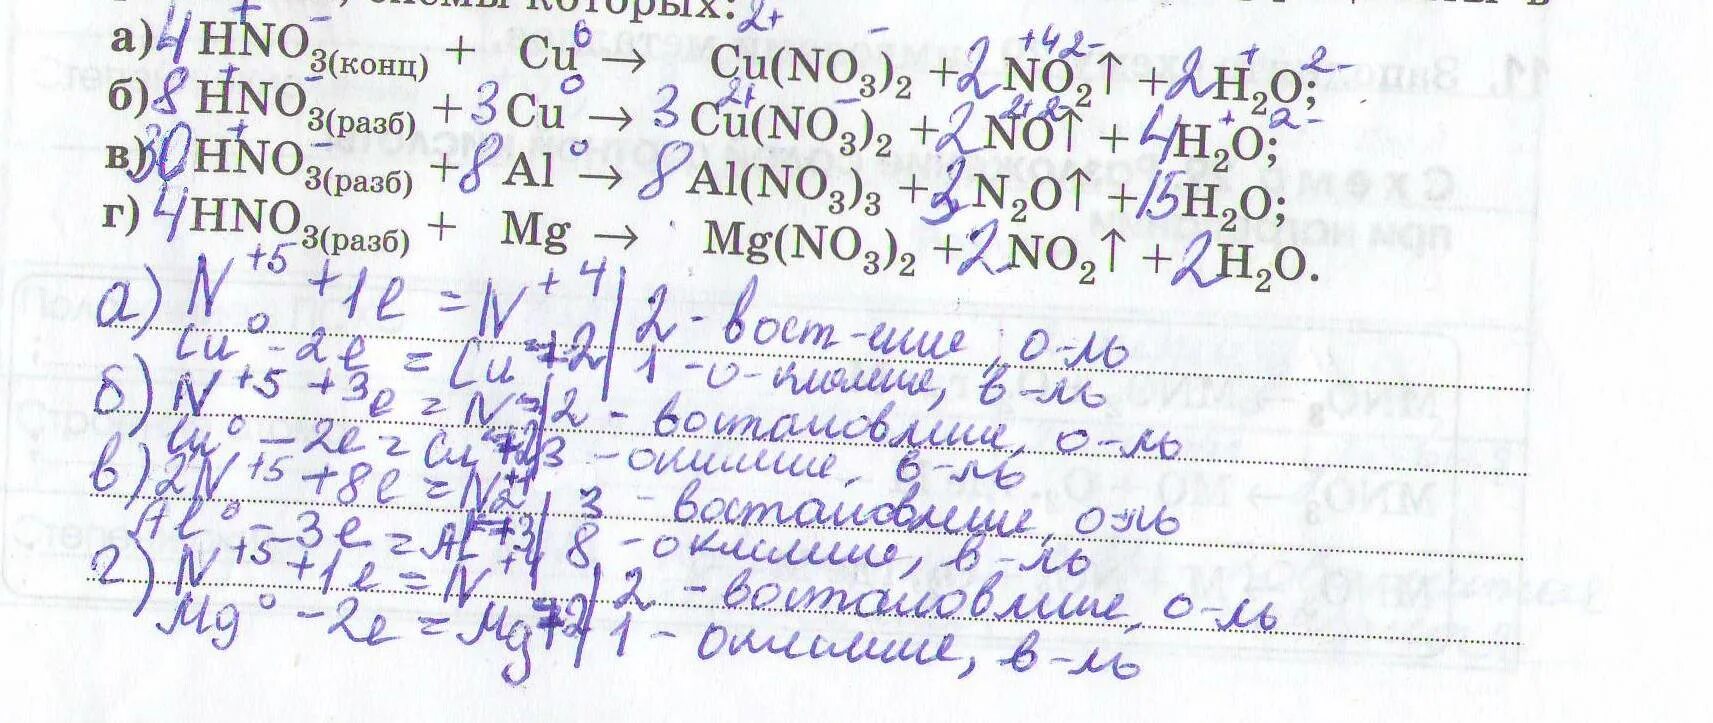 схемы которых:
а) 4HNO₃(конц) + Cu⁰ → Cu²⁺(NO₃)₂⁻ + 2NO₂↑ + 2H₂O;
б) 8HNO₃(разб) + 3Cu⁰ → 3Cu²⁺(NO₃)₂⁻ + 2NO↑ + 4H₂O;
в) 30HNO₃(разб) + 8Al⁰ → 8Al(NO₃)₃ + 3N₂O↑ + 15H₂O;
г) 4HNO₃(разб) + Mg → Mg(NO₃)₂ + 2NO₂↑ + 2H₂O.
а) N⁺⁵ + 1e = N⁺⁴ | 2 - вост-ение, о-ль
Cu⁰ - 2e = Cu⁺² | 1 - о-кисление, в-ль
б) N⁺⁵ + 3e = N⁺² | 2 - востановление, о-ль
Cu⁰ - 2e = Cu⁺² | 3 - окисление, в-ль
в) 2N⁺⁵ + 8e = N₂⁺¹ | 3 - востановление, о-ль
Al⁰ - 3e = Al⁺³ | 8 - окисление, в-ль
г) N⁺⁵ + 1e = N⁺⁴ | 2 - востановление, о-ль
Mg⁰ - 2e = Mg⁺² | 1 - окисление, в-ль